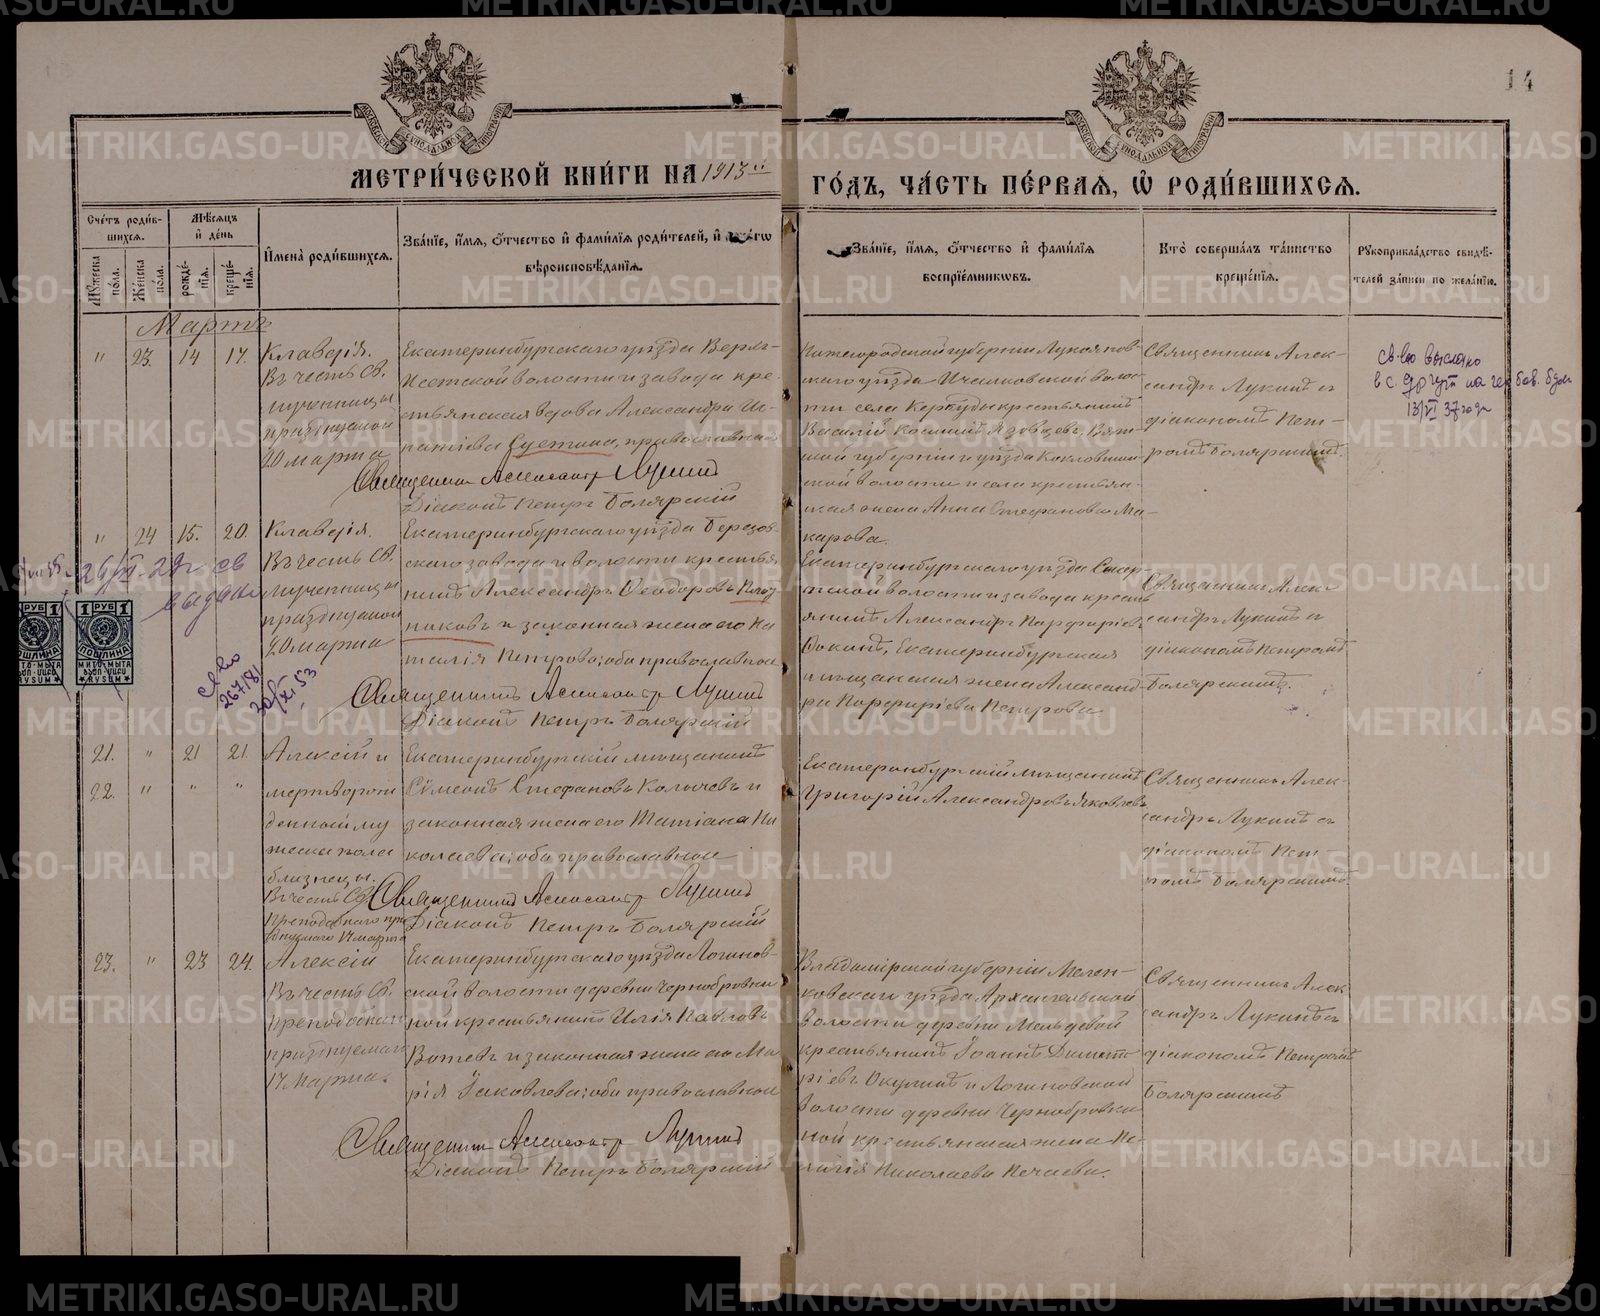 14
МЕТРИ́ЧЕСКОЙ КНИ́ГИ НА 1913й
ГО́ДЪ, ЧА́СТЬ ПЕ́РВАЯ, Ѡ҆ РОДИ́ВШИХСЯ.
Сче́тъ роди́в-
шихся.
Му́жеска по́ла.
Же́нска по́ла.
Мѣ́сяцъ
и҆ де́нь
рожде́-
нїя.
креще́-
нїя.
И҆мена̀ роди́вшихся.
Зва́нїе, и҆́мя, ѻ҆́тчество и҆ фами́лїя роди́телей, и҆
вѣроисповѣ́данїя.
Зва́нїе, и҆́мя, ѻ҆́тчество и҆ фами́лїя
воспрїе́мниковъ.
Кто̀ соверша́лъ та́инство
креще́нїя.
Рꙋкоприкла́дство свидѣ́-
телей за́писи по жела́нїю.
Мартъ
" 23. 14 17.
Клавдія.
Въ честь Св.
мученицы
празднуемой
20 марта
Екатеринбургскаго уѣзда Верхъ-
Исетской волости и завода кре-
стьянская вдова Александра Иг-
натіева Суетина, православная
Священникъ Александръ Лукинъ
Діаконъ Петръ Болярскій
Нижегородской губерніи Лукоянов-
скаго уѣзда Ичалковской волос-
ти села Кержуды крестьянинъ
Василій Козминъ Язовцевъ, Вят-
ской губерніи и уѣзда
ской волости и села крестьян-
ская жена Анна Стефанова Ма-
карова.
Священникъ Алек-
сандръ Лукинъ съ
діакономъ Пет-
ромъ Болярскимъ.
св-во выслано
13/VI 37 года
" 24 15. 20.
Клавдія.
Въ честь Св.
мученицы
празднуемой
20 марта
Екатеринбургскаго уѣзда Березов-
скаго завода и волости крестья-
нинъ Александръ Ѳеодоровъ Плот-
никовъ и законная жена его На-
талія Петрова; оба православные
Священникъ Александръ Лукинъ
Діаконъ Петръ Болярскій
Екатеринбургскаго уѣзда Сысер-
тской волости и завода кресть-
янинъ Александръ Порфиріевъ
Фокинъ, Екатеринбургская
мѣщанская жена Александ-
ра Порфиріева Петрова
Священникъ Алек-
сандръ Лукинъ съ
діакономъ Петромъ
Болярскимъ.
св
выдано
1 РУБ 1
ПОШЛИНА
св-во
267181
53
21. " 21 21
22. " " "
Алексій и
мертворож
денной му
жеска пола
близнецы.
Въ честь Св.
Преподобнаго пра
зднуемаго 17 марта
Екатеринбургскій мѣщанинъ
Сѵмеонъ Стефановъ Колычевъ и
законная жена его Татіана Ни
колаева; оба православные
Священникъ Александръ Лукинъ
Діаконъ Петръ Болярскій
Екатеринбургскій мѣщанинъ
Григорій Александровъ Яковлевъ
Священникъ Алек-
сандръ Лукинъ съ
діакономъ Пет-
ромъ Болярскимъ
23. " 23 24.
Алексій
Въ честь Св.
преподобнаго
празднуемаго
17 Марта.
Екатеринбургскаго уѣзда Логинов-
ской волости деревни Чернобровки
ной крестьянинъ Илія Павловъ
Вотевъ и законная жена его Ма
рія Іаковлева; оба православные
Священникъ Александръ Лукинъ
Діаконъ Петръ Болярскій
Владимірской губерніи Мелен-
ковскаго уѣзда Архангельской
волости деревни
крестьянинъ Іоаннъ Димит-
ріевъ Окулинъ и Логиновской
волости деревни Чернобровки
ной крестьянская жена
Николаева Нечаева.
Священникъ Алек
сандръ Лукинъ съ
діакономъ Петромъ
Болярскимъ
METRIKI.GASO-URAL.RU